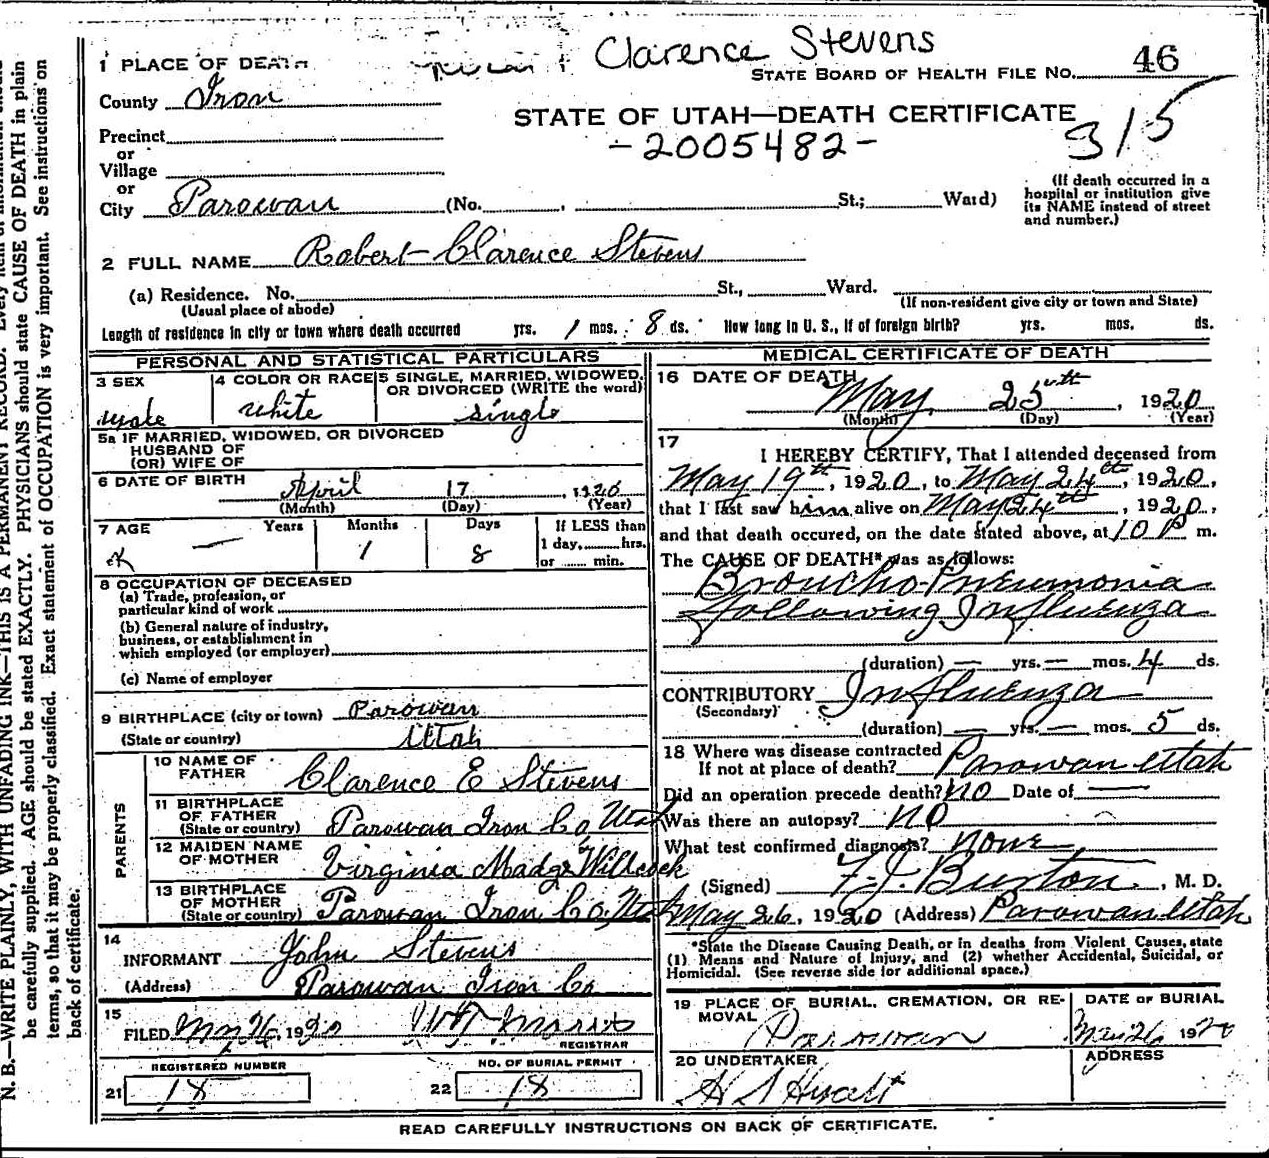 Clarence Stevens
1 PLACE OF DEATH
STATE BOARD OF HEALTH FILE NO. 46
County Iron
STATE OF UTAH—DEATH CERTIFICATE
-2005482-
315
Precinct
or
Village
or
City Parowan (No. , St.; Ward)
(If death occurred in a
hospital or institution give
its NAME instead of street
and number.)
2 FULL NAME Robert Clarence Stevens
(a) Residence. No. St., Ward.
(Usual place of abode) (If non-resident give city or town and State)
Length of residence in city or town where death occurred yrs. 1 mos. 8 ds. How long in U. S., if of foreign birth? yrs. mos. ds.
PERSONAL AND STATISTICAL PARTICULARS
3 SEX 4 COLOR OR RACE 5 SINGLE, MARRIED, WIDOWED,
OR DIVORCED (WRITE the word)
male white single
5a IF MARRIED, WIDOWED, OR DIVORCED
HUSBAND OF
(OR) WIFE OF
6 DATE OF BIRTH April 17, 1920
(Month) (Day) (Year)
7 AGE Years Months Days If LESS than
1 day,......hrs.
— 1 8 or ...... min.
8 OCCUPATION OF DECEASED
(a) Trade, profession, or
particular kind of work
(b) General nature of industry,
business, or establishment in
which employed (or employer)
(c) Name of employer
9 BIRTHPLACE (city or town) Parowan
(State or country) Utah
PARENTS
10 NAME OF
FATHER Clarence E Stevens
11 BIRTHPLACE
OF FATHER
(State or country) Parowan Iron Co, Utah
12 MAIDEN NAME
OF MOTHER Virginia Madge Willcock
13 BIRTHPLACE
OF MOTHER
(State or country) Parowan Iron Co, Utah
14
INFORMANT John Stevens
(Address) Parowan Iron Co
15
FILED May 26, 1920
REGISTRAR
REGISTERED NUMBER NO. OF BURIAL PERMIT
21 18 22 18
MEDICAL CERTIFICATE OF DEATH
16 DATE OF DEATH
May 25th, 1920
(Month) (Day) (Year)
17
I HEREBY CERTIFY, That I attended deceased from
May 19th, 1920, to May 24th, 1920,
that I last saw him alive on May 24th, 1920,
and that death occured, on the date stated above, at 10 P m.
The CAUSE OF DEATH* was as follows:
Broncho-Pneumonia
following Influenza
(duration) — yrs. — mos. 4 ds.
CONTRIBUTORY Influenza
(Secondary)
(duration) — yrs. — mos. 5 ds.
18 Where was disease contracted
If not at place of death? Parowan Utah
Did an operation precede death? NO Date of —
Was there an autopsy? NO
What test confirmed diagnosis? None
(Signed) F. J. Burton, M. D.
May 26, 1920 (Address) Parowan Utah
*State the Disease Causing Death, or in deaths from Violent Causes, state
(1) Means and Nature of Injury, and (2) whether Accidental, Suicidal, or
Homicidal. (See reverse side for additional space.)
19 PLACE OF BURIAL, CREMATION, OR RE-
MOVAL Parowan
DATE OF BURIAL
May 26 1920
20 UNDERTAKER
ADDRESS
READ CAREFULLY INSTRUCTIONS ON BACK OF CERTIFICATE.
N. B.—WRITE PLAINLY, WITH UNFADING INK—THIS IS A PERMANENT RECORD.
be carefully supplied. AGE should be stated EXACTLY. PHYSICIANS should state CAUSE OF DEATH in plain
terms, so that it may be properly classified. Exact statement of OCCUPATION is very important. See instructions on
back of certificate.